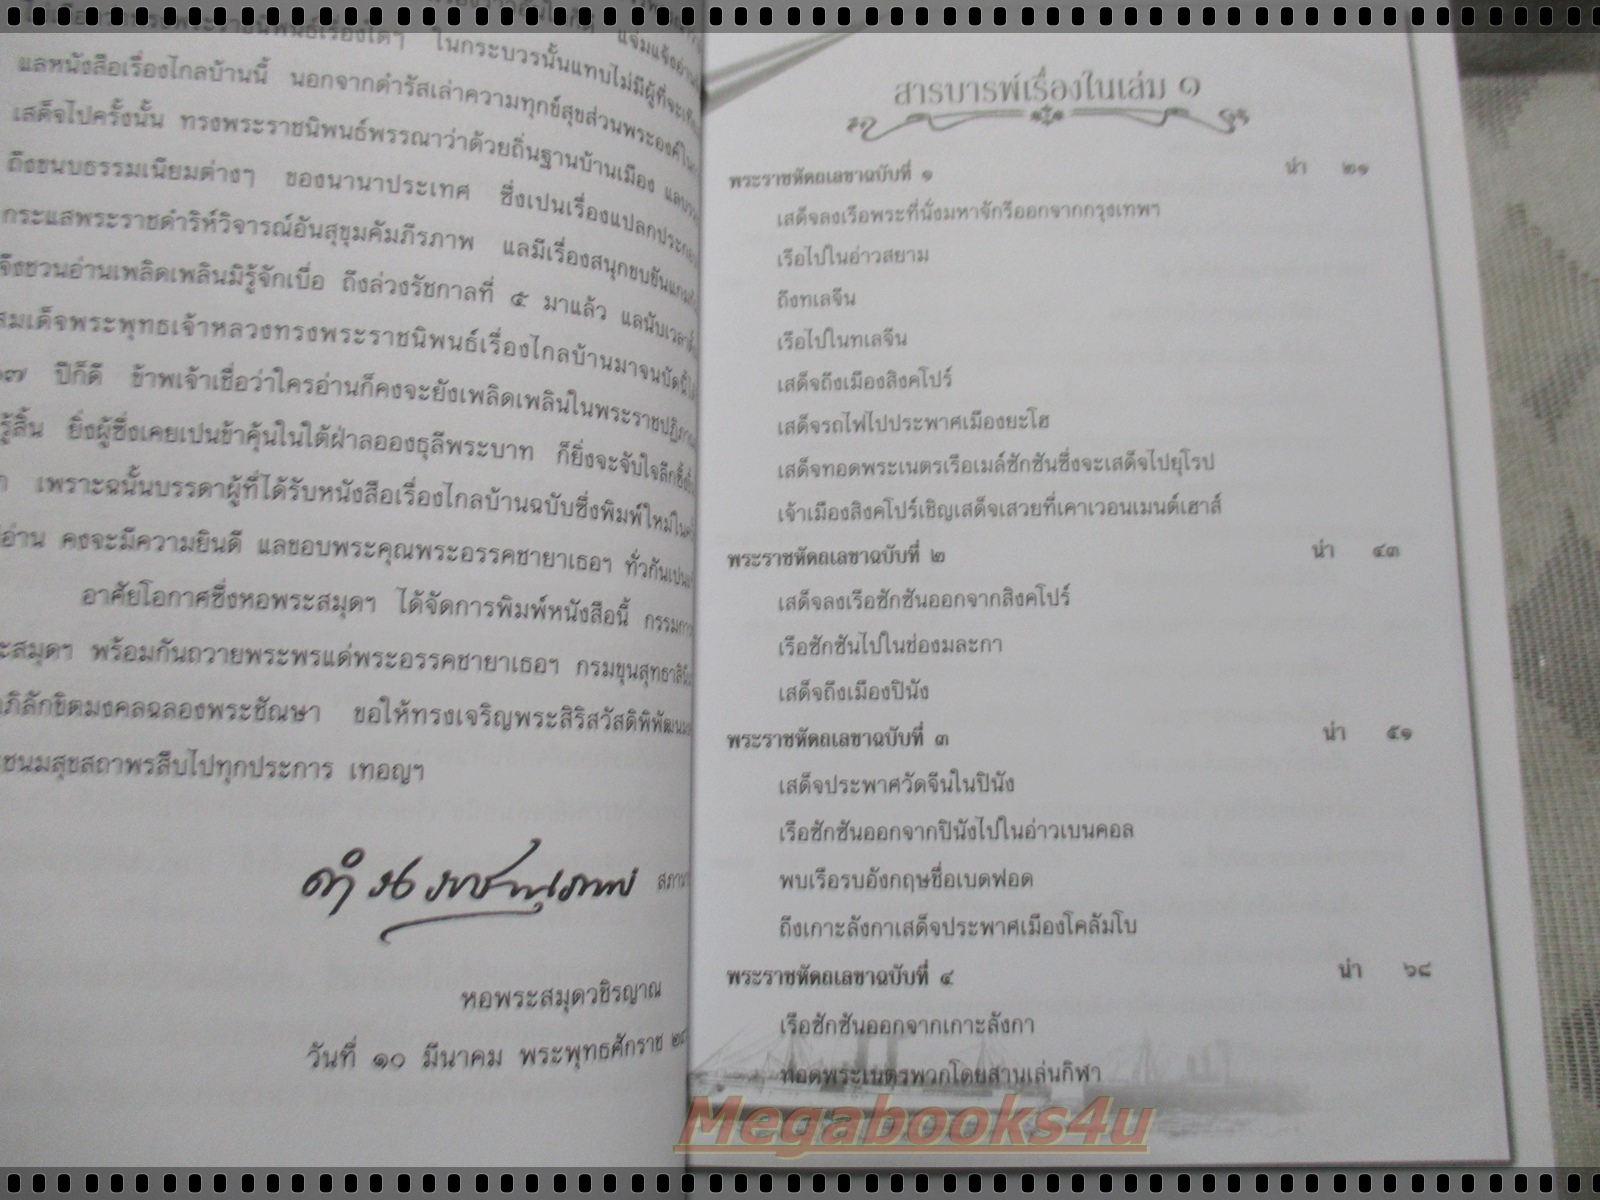 แลหนังสือเรื่องไกลบ้านนี้ นอกจากดำรัสเล่าความทุกข์สุขส่วนพระองค์
เสด็จไปครั้งนั้น ทรงพระราชนิพนธ์พรรณาว่าด้วยถิ่นฐานบ้านเมือง
ถึงขนบธรรมเนียมต่างๆ ของนานาประเทศ ซึ่งเปนเรื่องแปลก
กระแสพระราชดำริห์วิจารณ์อันสุขุมคัมภีรภาพ แลมีเรื่องสนุกขบขัน
จึงชวนอ่านเพลิดเพลินมิรู้จักเบื่อ ถึงล่วงรัชกาลที่ ๕ มาแล้ว แลนับเวลา
สมเด็จพระพุทธเจ้าหลวงทรงพระราชนิพนธ์เรื่องไกลบ้านมาจนบัดนี้
๑๗ ปีก็ดี ข้าพเจ้าเชื่อว่าใครอ่านก็คงจะยังเพลิดเพลินในพระราชปฏิภาณ
รู้สิ้น ยิ่งผู้ซึ่งเคยเปนข้าคุ้นในใต้ฝ่าลอองธุลีพระบาท ก็ยิ่งจะจับใจลึกซึ้ง
เพราะฉนั้นบรรดาผู้ที่ได้รับหนังสือเรื่องไกลบ้านฉบับซึ่งพิมพ์ใหม่
อ่าน คงจะมีความยินดี แลขอบพระคุณพระอรรคชายาเธอฯ ทั่วกัน
อาศัยโอกาศซึ่งหอพระสมุดฯ ได้จัดการพิมพ์หนังสือนี้ กรรมการ
ะสมุดฯ พร้อมกันถวายพระพรแด่พระอรรคชายาเธอฯ กรมขุนสุทธาสินี
ภิลักขิตมงคลฉลองพระชัณษา ขอให้ทรงเจริญพระสิริสวัสดิพิพัฒน
ะชนมสุขสถาพรสืบไปทุกประการ เทอญฯ
ดำรงราชานุภาพ สภานา
หอพระสมุดวชิรญาณ
วันที่ ๑๐ มีนาคม พระพุทธศักราช
สารบารพ์เรื่องในเล่ม ๑
พระราชหัดถเลขาฉบับที่ ๑ น่า ๒๑
เสด็จลงเรือพระที่นั่งมหาจักรีออกจากกรุงเทพฯ
เรือไปในอ่าวสยาม
ถึงทเลจีน
เรือไปในทเลจีน
เสด็จถึงเมืองสิงคโปร์
เสด็จรถไฟไปประพาศเมืองยะโฮ
เสด็จทอดพระเนตรเรือเมล์ซักซันซึ่งจะเสด็จไปยุโรป
เจ้าเมืองสิงคโปร์เชิญเสด็จเสวยที่เคาเวอนเมนต์เฮาส์
พระราชหัดถเลขาฉบับที่ ๒ น่า ๔๓
เสด็จลงเรือซักซันออกจากสิงคโปร์
เรือซักซันไปในช่องมละกา
เสด็จถึงเมืองปินัง
พระราชหัดถเลขาฉบับที่ ๓ น่า ๕๑
เสด็จประพาศวัดจีนในปินัง
เรือซักซันออกจากปินังไปในอ่าวเบนคอล
พบเรือรบอังกฤษชื่อเบดฟอด
ถึงเกาะลังกาเสด็จประพาศเมืองโคลัมโบ
พระราชหัดถเลขาฉบับที่ ๔ น่า ๖๘
เรือซักซันออกจากเกาะลังกา
ทอดพระเนตรพวกโดยสานเล่นกิฬา
Megabooks4u